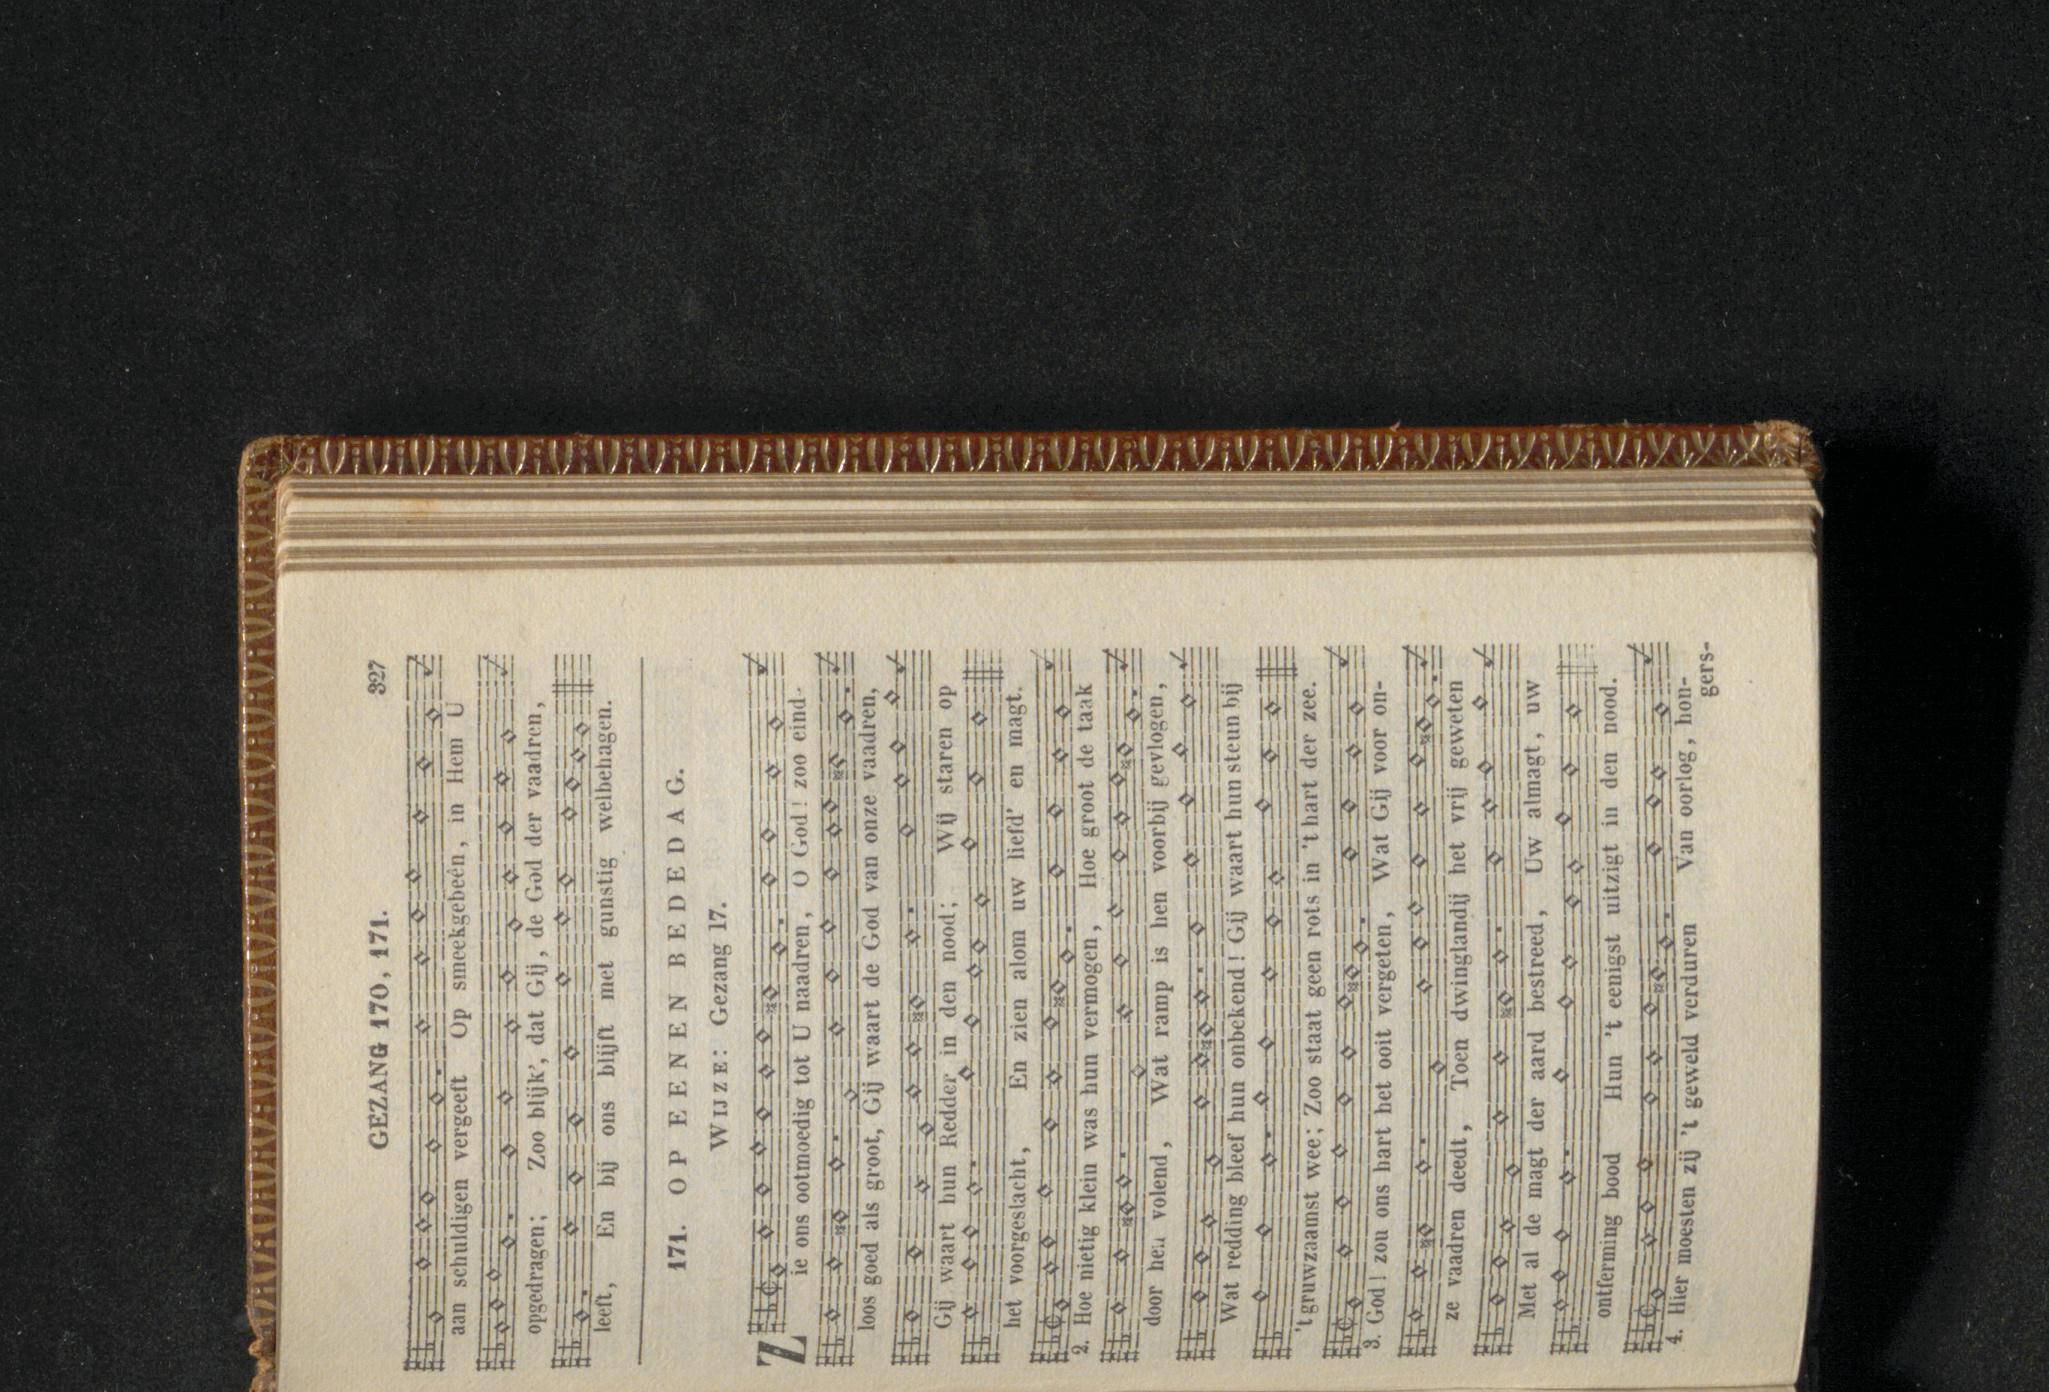 GEZANG 170, 171. 327
aan schuldigen vergeeft Op smeekgebeên, in Hem U
opgedragen; Zoo blijk', dat Gij, de God der vaadren,
leeft, En bij ons blijft met gunstig welbehagen.
171. OP EENEN BEDEDAG.
WIJZE: Gezang 17.
Zie ons ootmoedig tot U naadren, O God! zoo eind-
loos goed als groot, Gij waart de God van onze vaadren,
Gij waart hun Redder in den nood; Wij staren op
het voorgestacht, En zien alom uw liefd' en magt.
2. Hoe nietig klein was hun vermogen, Hoe groot de taak
door hen volend, Wat ramp is hen voorbij gevlogen,
Wat redding bleef hun onbekend! Gij waart hun steun bij
't gruwzaamst wee; Zoo staat geen rots in 't hart der zee.
3. God! zou ons hart het ooit vergeten, Wat Gij voor on-
ze vaadren deedt, Toen dwinglandij het vrij geweten
Met al de magt der aard bestreed, Uw almagt, uw
ontferming bood Hun 't eenigst uitzigt in den nood.
4. Hier moesten zij 't geweld verduren Van oorlog, hon-
gers-